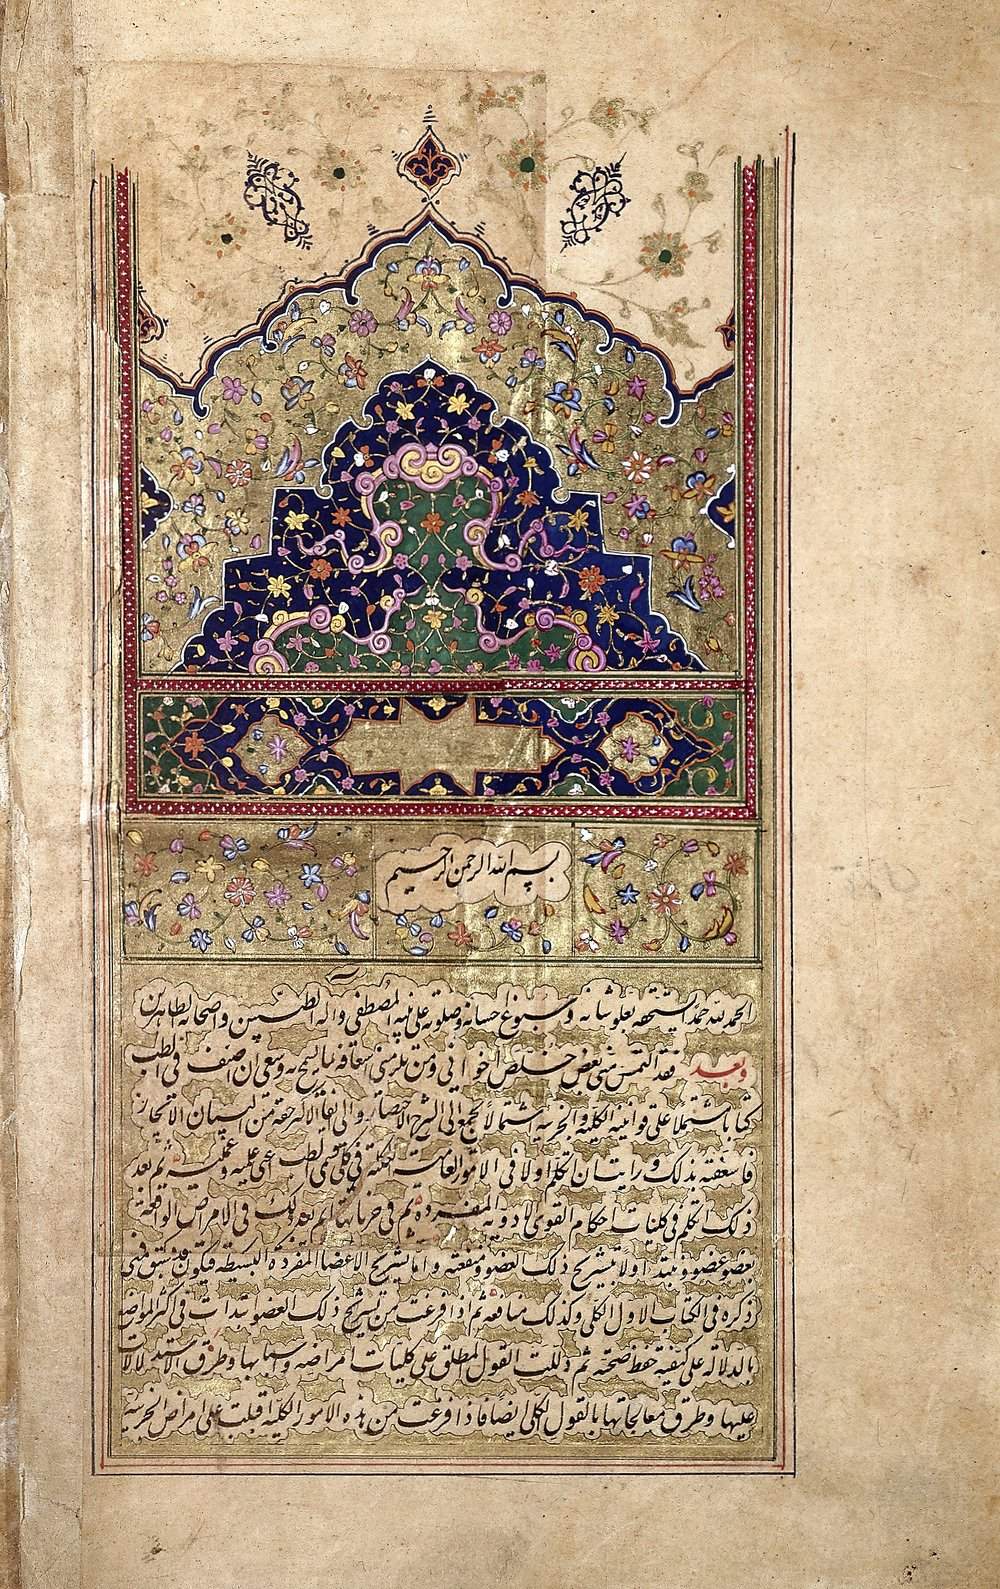 بسم الله الرحمن الرحيم
الحمد لله حمدا يستحقه بعلو شانه وسبوغ احسانه وصلوته على نبيه المصطفى واله الطيبين واصحابه الطاهرين
وبعد فقد التمس منى بعض خلص اخوانى ومن يلزمنى اسعافه بما يسمح به وسعى ان اصنف فى الطب
كتابا مشتملا على قوانينه الكلية والجزئية اشتمالا يجمع الى الشرح الاختصار والى ايفاء الاكثر حقه من البيان الايجاز
فاسعفته بذلك ورايت ان اتكلم اولا فى الامور العامية الكلية فى كلى قسمى الطب اعنى علميه وعمليه ثم بعد
ذلك اتكلم فى كليات احكام القوى الادوية المفردة ثم فى جزئياتها ثم بعد ذلك فى الامراض الواقعة
بعضو عضو ونبتدا اولا بتشريح ذلك العضو ومنفعته واما تشريح الاعضا المفردة البسيطه فيكون قد سبق منى
ذكره فى الكتاب الاول الكلى وكذلك منافعه ثم اذا فرغت من تشريح ذلك العضو ابتدات فى اكثر المواضع
بالدلاله على كيفية حفظ صحته ثم دللت القول المطلق على كليات امراضه واسبابها وطرق الاستدلالات
عليها وطرق معالجاتها بالقول الكلى ايضا فاذا فرغت من هذه الامور الكليه اقبلت على امراض الجزئية